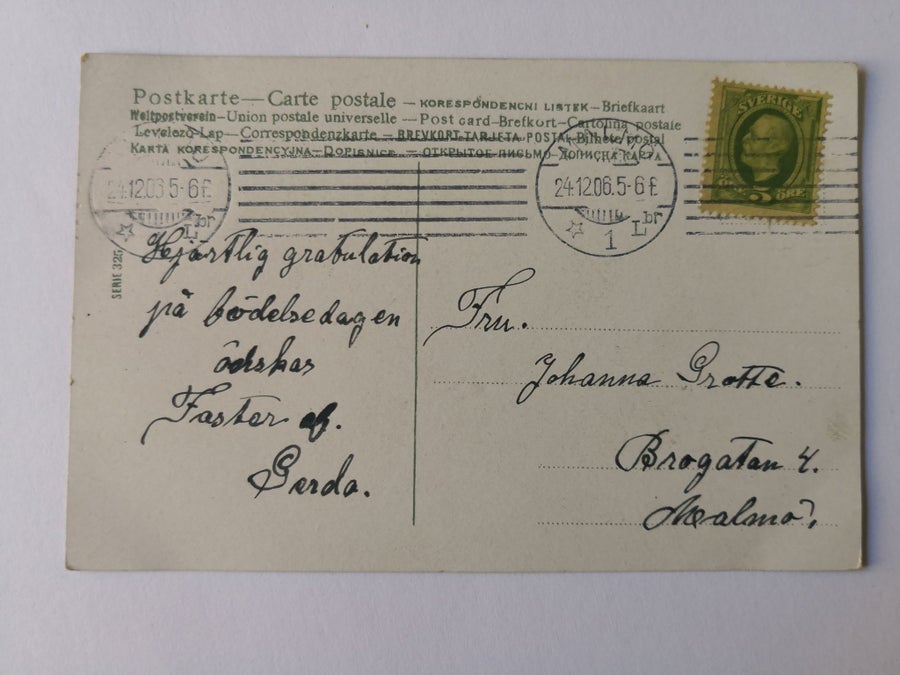 Postkarte — Carte postale — KORESPONDENCNI LISTEK — Briefkaart
Weltpostverein — Union postale universelle — Post card — Brefkort — Cartolina postale
Levelező-Lap — Correspondenzkarte — BREVKORT TARJETA POSTAL — Bilhete postal
KARTA KORESPONDENCYJNA — DOPISNICE — ОТКРЫТОЕ ПИСЬМО — ДОПИСНА КАРТА
SVERIGE
5 ÖRE
24.12.06.5-6 E
24.12.06.5-6 E
1 Lbr
Lbr
SERIE 325
Hjärtlig gratulation
på födelsedagen
önskas
Faster
Gerda.
Fru.
Johanna Grotte.
Brogatan 4.
Malmö,